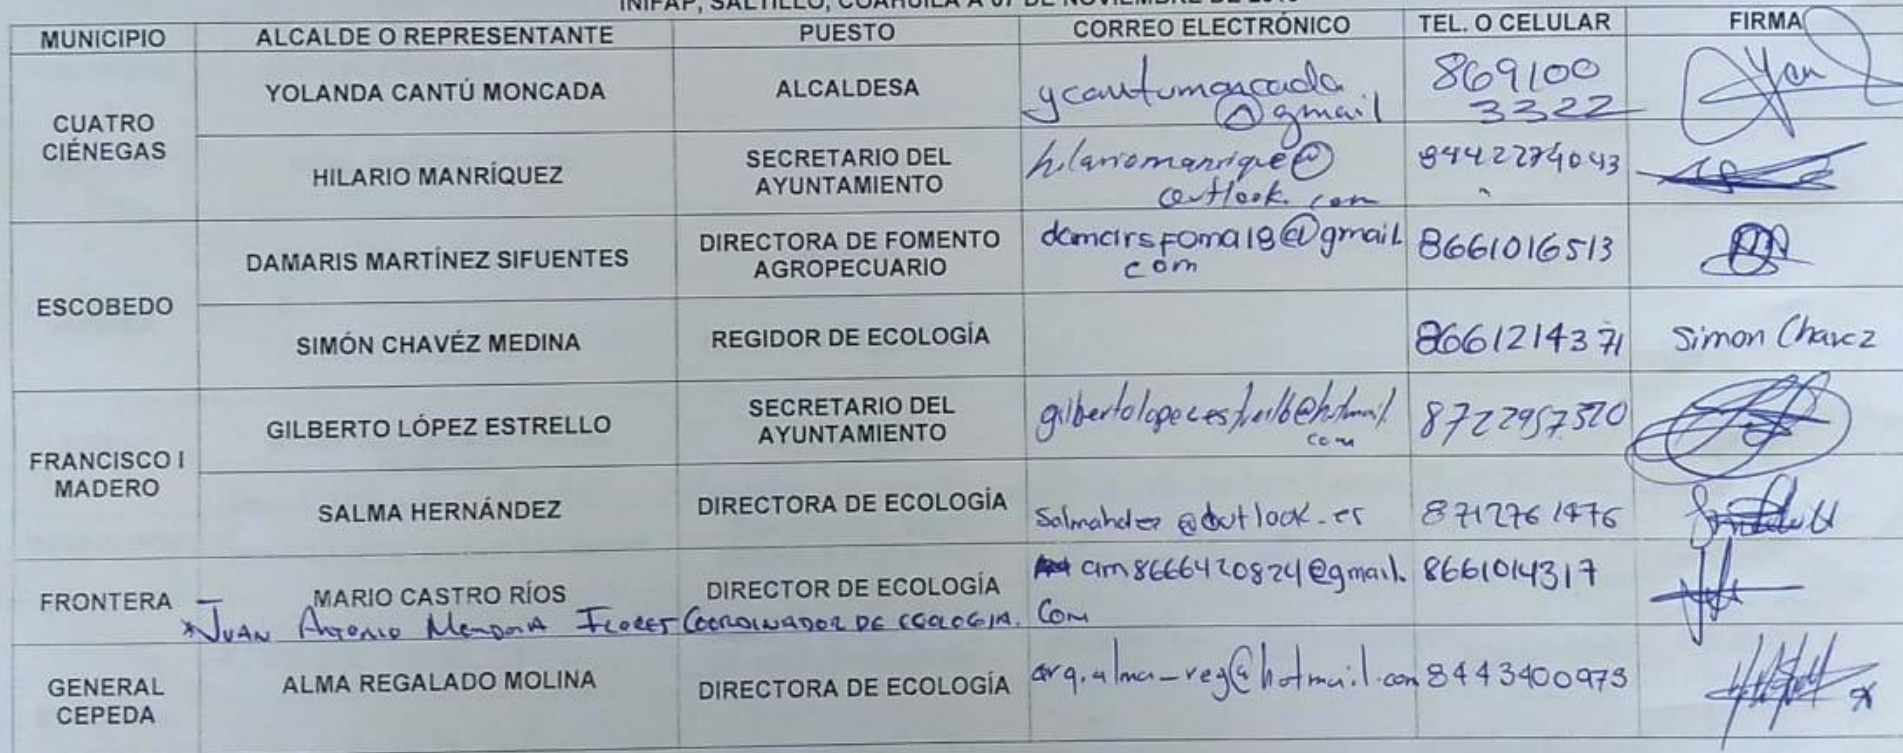 INIFAP, SALTILLO, COAHUILA A 07 DE NOVIEMBRE DE
MUNICIPIO ALCALDE O REPRESENTANTE PUESTO CORREO ELECTRÓNICO TEL. O CELULAR FIRMA
CUATRO CIÉNEGAS
YOLANDA CANTÚ MONCADA ALCALDESA ycantumoncada @gmail 869100 3322
HILARIO MANRÍQUEZ SECRETARIO DEL AYUNTAMIENTO hilariomanrique@ outlook.com 8442274043
ESCOBEDO
DAMARIS MARTÍNEZ SIFUENTES DIRECTORA DE FOMENTO AGROPECUARIO damarsfoma18@gmail com 8661016513
SIMÓN CHAVÉZ MEDINA REGIDOR DE ECOLOGÍA 8661214371 Simon Chavez
FRANCISCO I MADERO
GILBERTO LÓPEZ ESTRELLO SECRETARIO DEL AYUNTAMIENTO 8722957320
SALMA HERNÁNDEZ DIRECTORA DE ECOLOGÍA Salmahdez@outlook.es 8712761476
FRONTERA MARIO CASTRO RÍOS DIRECTOR DE ECOLOGÍA am8666420824@gmail. Com 8661014317
*JUAN ANTONIO MENDOZA FLORES COORDINADOR DE ECOLOGIA.
GENERAL CEPEDA
ALMA REGALADO MOLINA DIRECTORA DE ECOLOGÍA arq.alma_reg@hotmail.com 8443400973